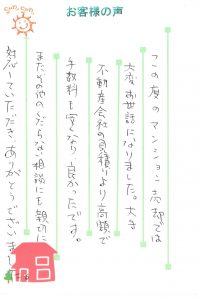 お客様の声
この度のマンション売却では
大変お世話になりました。大手
不動産会社の見積りより高額で
手数料も安くなり良かったです。
またその他のくだらない相談にも親切に
対応していただきありがとうございました